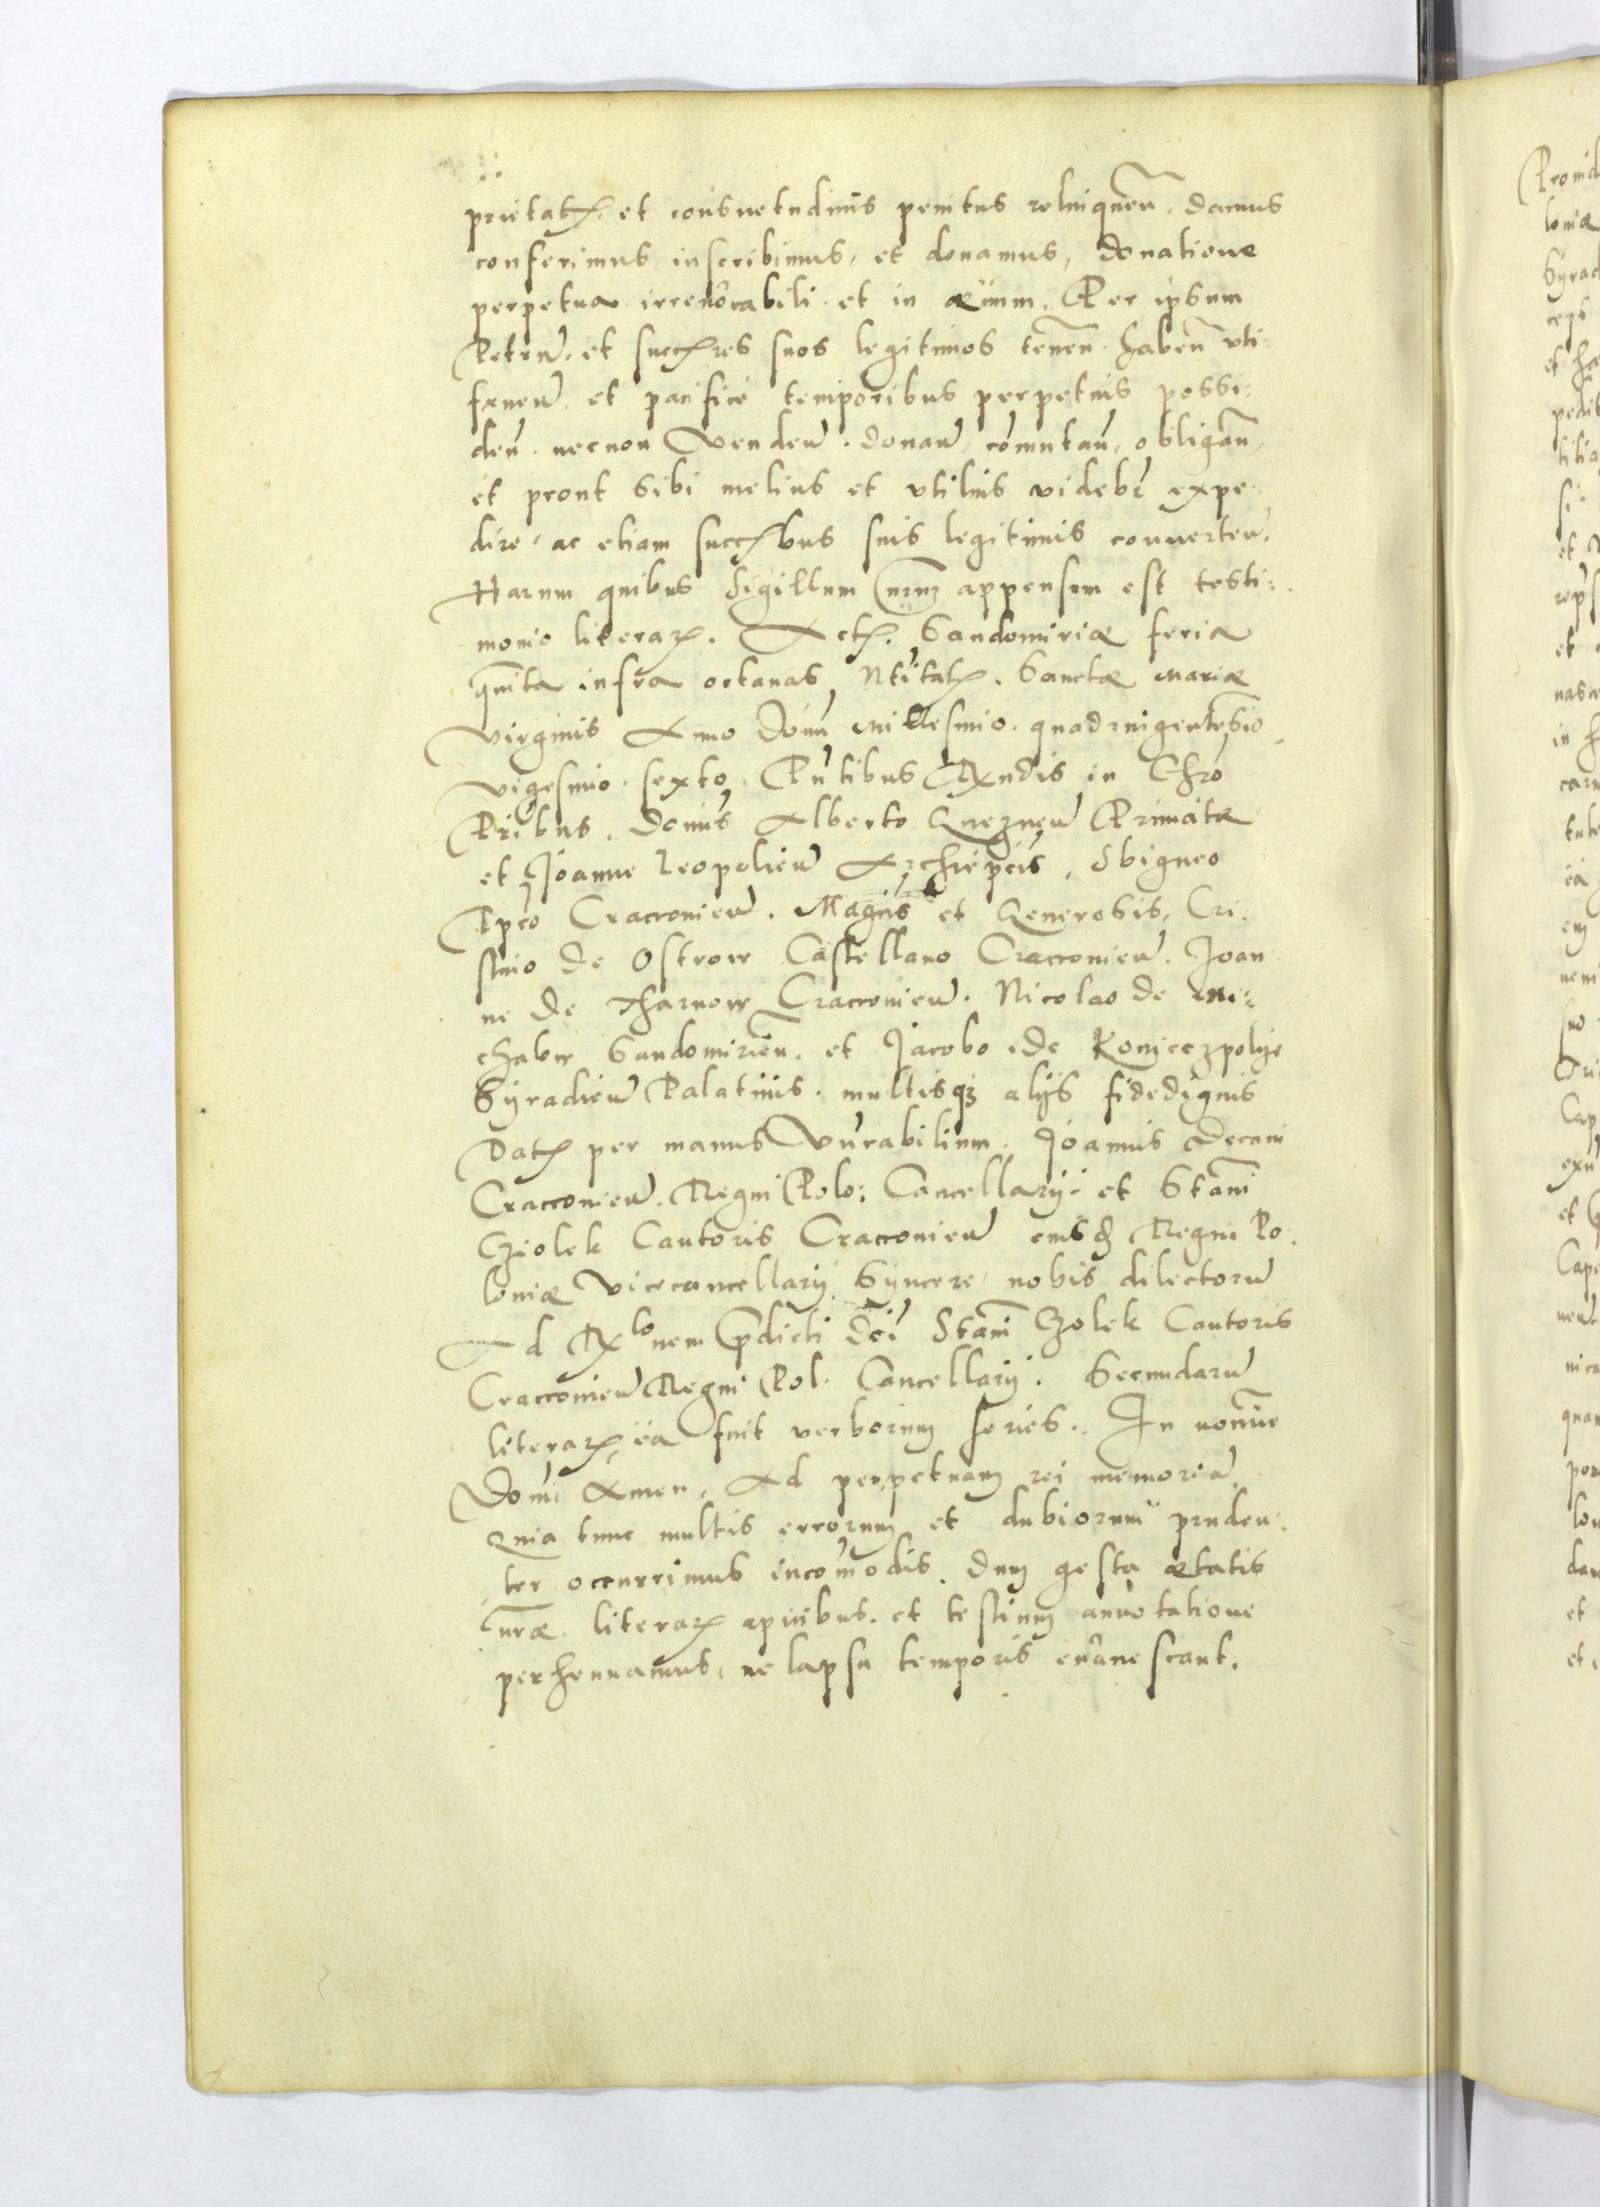 prietatꝭ et consuetudinis penitus relinquen̄. damus
conferimus inscribimus, et donamus, donatione
perpetua irreuocabili et in æuum. Per ipsum
Petrū. et succꝭres suos legitimos tenen̄. haben̄ vti
fruen̄. et pacifice temporibus perpetuis possi:
den̄. necnon Venden̄. donan̄ com̄utan̄, obligan̄,
et prout sibi melius et vtilius videbr̄ expe
dire. ac etiam succꝭbus suis legitimis conuerten̄.
Harum quibus Sigillum nrm̄ appensum est testi:
monio literaꝝ. Actꝭ. Sandomiriæ feria
quinta infra octauas Ntītatꝭ. Sanctæ Mariæ
Virginis Anno Domī Millesimo. quadringentesīo
vigesimo. sexto. Pn̄tibus Rxndis in Chrō
Pribus, Domīs Alberto Gneznen̄ Primate
et Joanne Leopolien̄ Archiepcis, Sbigneo
Epco Cracouien̄. Magcis et Generosis, Cri.
stino de Ostrow Castellano Cracouien̄. Joan
ne de Tharnow Cracouien̄. Nicolao de Mi:
chalow Sandomirien̄. et Jacobo de Koniecpolye
Syradien̄ Palatinis. multisqꝫ alijs fidedignis
Datꝭ per manus Vn̄rabilium. Joannis Decani
Cracouien̄. Regni Polo: Cancellarij. et Stani
Cziolek Cantoris Cracouien̄ eiusd Regni Po.
loniæ Vicecancellarij Syncere nobis dilectorū
Ad Rxlonem p̄dicti Dn̄i Stani Czolek Cantoris
Cracouien̄ Regni Pol. Cancellarij. Secundarū
literaꝝ, ea fuit verborum series. In nomīe
Domī Amen. Ad perpetuam rei memoriā
Quia tunc multis errorum et dubiorum pruden:
ter occurrimus incom̄odis. dum gesta ætatis
nr̄æ literaꝝ apicibus. et testium annotatione
perhennamus, ne lapsu temporis euanescant.